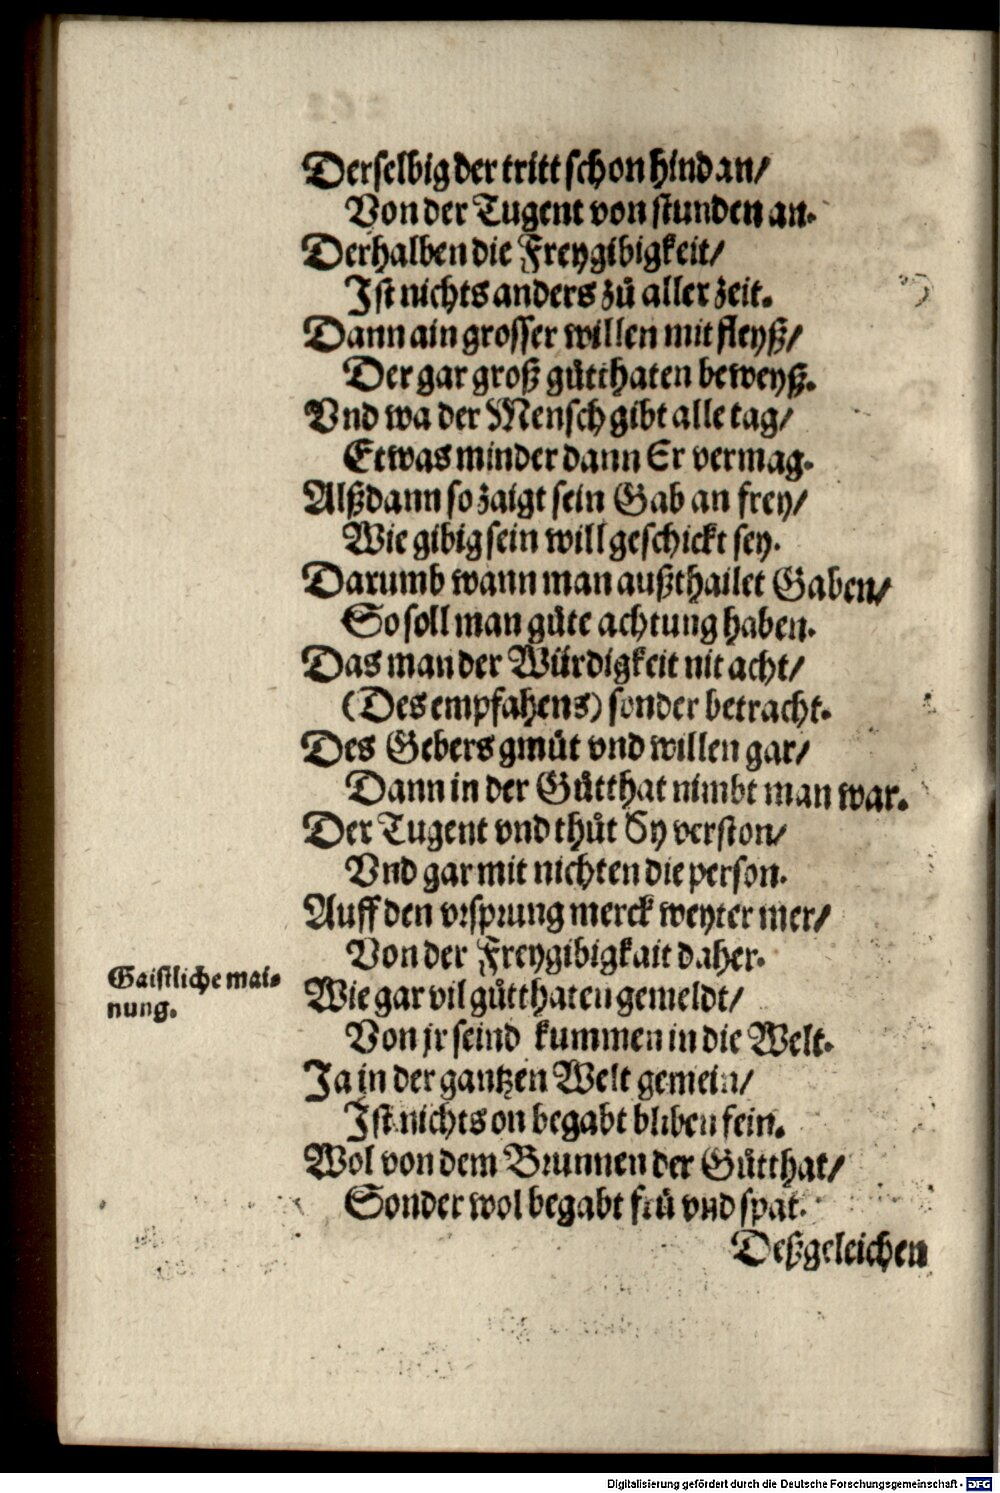 Derselbig der tritt schon hindan/
Von der Tugent von stunden an.
Derhalben die Freygibigkeit/
Ist nichts anders zů aller zeit.
Dann ain grosser willen mit fleyß/
Der gar groß gůtthaten beweyß.
Vnd wa der Mensch gibt alle tag/
Etwas minder dann Er vermag.
Alßdann so zaigt sein Gab an frey/
Wie gibig sein will geschickt sey.
Darumb wann man außthailet Gaben/
So soll man gůte achtung haben.
Das man der Würdigkeit nit acht/
(Des empfahens) sonder betracht.
Des Gebers gmůt vnd willen gar/
Dann in der Gůtthat nimbt man war.
Der Tugent vnd thůt Sy verston/
Vnd gar mit nichten die person.
Auff den vrsprung merck weyter mer/
Von der Freygibigkait daher.
Gaistliche mai-
nung.
Wie gar vil gůtthaten gemeldt/
Von jr seind kummen in die Welt.
Ja in der gantzen Welt gemein/
Ist nichts on begabt bliben fein.
Wol von dem Brunnen der Gůtthat/
Sonder wol begabt frů vnd spat.
Deßgeleichen
Digitalisierung gefördert durch die Deutsche Forschungsgemeinschaft - DFG